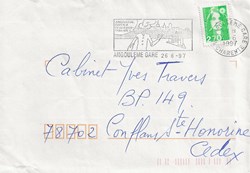 ANGOULEME GARE 26 6-97
2,70
1997
Cabinet Yves Travers
BP. 149
78702 Conflans Ste-Honorine
Cedex